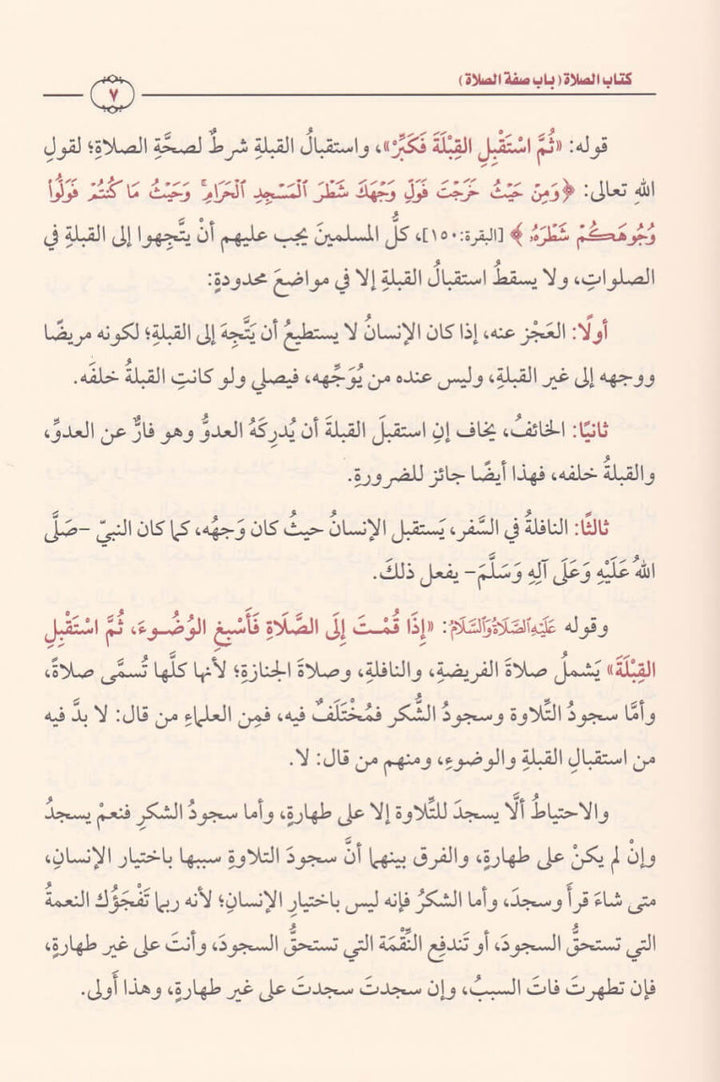 كتاب الصلاة (باب صفة الصلاة)
٧
قوله: «ثُمَّ اسْتَقْبِلِ القِبْلَةَ فَكَبِّرْ»، واستقبالُ القبلةِ شرطٌ لصحَّةِ الصلاةِ؛ لقولِ
اللهِ تعالى: ﴿وَمِنْ حَيْثُ خَرَجْتَ فَوَلِّ وَجْهَكَ شَطْرَ الْمَسْجِدِ الْحَرَامِ ۚ وَحَيْثُ مَا كُنتُمْ فَوَلُّوا۟
وُجُوهَكُمْ شَطْرَهُۥ﴾ [البقرة:١٥٠]، كلُّ المسلمينَ يجب عليهم أنْ يتَّجِهوا إلى القبلةِ في
الصلواتِ، ولا يسقطُ استقبالُ القبلةِ إلا في مواضعَ محدودةٍ:
أولًا: العَجْز عنه، إذا كان الإنسانُ لا يستطيعُ أن يَتَّجِهَ إلى القبلةِ؛ لكونه مريضًا
ووجهه إلى غير القبلةِ، وليس عنده من يُوَجِّهه، فيصلي ولو كانتِ القبلةُ خلفَه.
ثانيًا: الخائفُ، يخاف إنِ استقبلَ القبلةَ أن يُدرِكَهُ العدوُّ وهو فارٌّ عن العدوِّ،
والقبلةُ خلفه، فهذا أيضًا جائز للضرورةِ.
ثالثًا: النافلةُ في السَّفر، يَستقبل الإنسانُ حيثُ كان وَجهُه، كما كان النبيّ -صَلَّى
اللهُ عَلَيْهِ وَعَلَى آلِهِ وَسَلَّمَ- يفعل ذلكَ.
وقوله عَلَيْهِ الصَّلَاةُ وَالسَّلَامُ: «إِذَا قُمْتَ إِلَى الصَّلَاةِ فَأَسْبِغِ الوُضُوءَ، ثُمَّ اسْتَقْبِلِ
القِبْلَةَ» يَشملُ صلاةَ الفريضةِ، والنافلةِ، وصلاةَ الجنازةِ؛ لأنها كلَّها تُسمَّى صلاةً،
وأمَّا سجودُ التِّلاوة وسجودُ الشُّكر فمُخْتَلَفٌ فيه، فمِن العلماءِ من قال: لا بدَّ فيه
من استقبالِ القبلةِ والوضوءِ، ومنهم من قال: لا.
والاحتياطُ ألَّا يسجدَ للتِّلاوةِ إلا على طهارةٍ، وأما سجودُ الشكرِ فنعمْ يسجدُ
وإنْ لم يكنْ على طهارةٍ، والفرق بينهما أنَّ سجودَ التلاوةِ سببها باختيار الإنسانِ،
متى شاءَ قرأَ وسجدَ، وأما الشكرُ فإنه ليس باختيارِ الإنسانِ؛ لأنه ربما تَفْجَؤُك النعمةُ
التي تستحقُّ السجودَ، أو تَندفِع النِّقْمَة التي تستحقُّ السجودَ، وأنتَ على غير طهارةٍ،
فإن تطهرتَ فاتَ السببُ، وإن سجدتَ سجدتَ على غير طهارةٍ، وهذا أَولى.